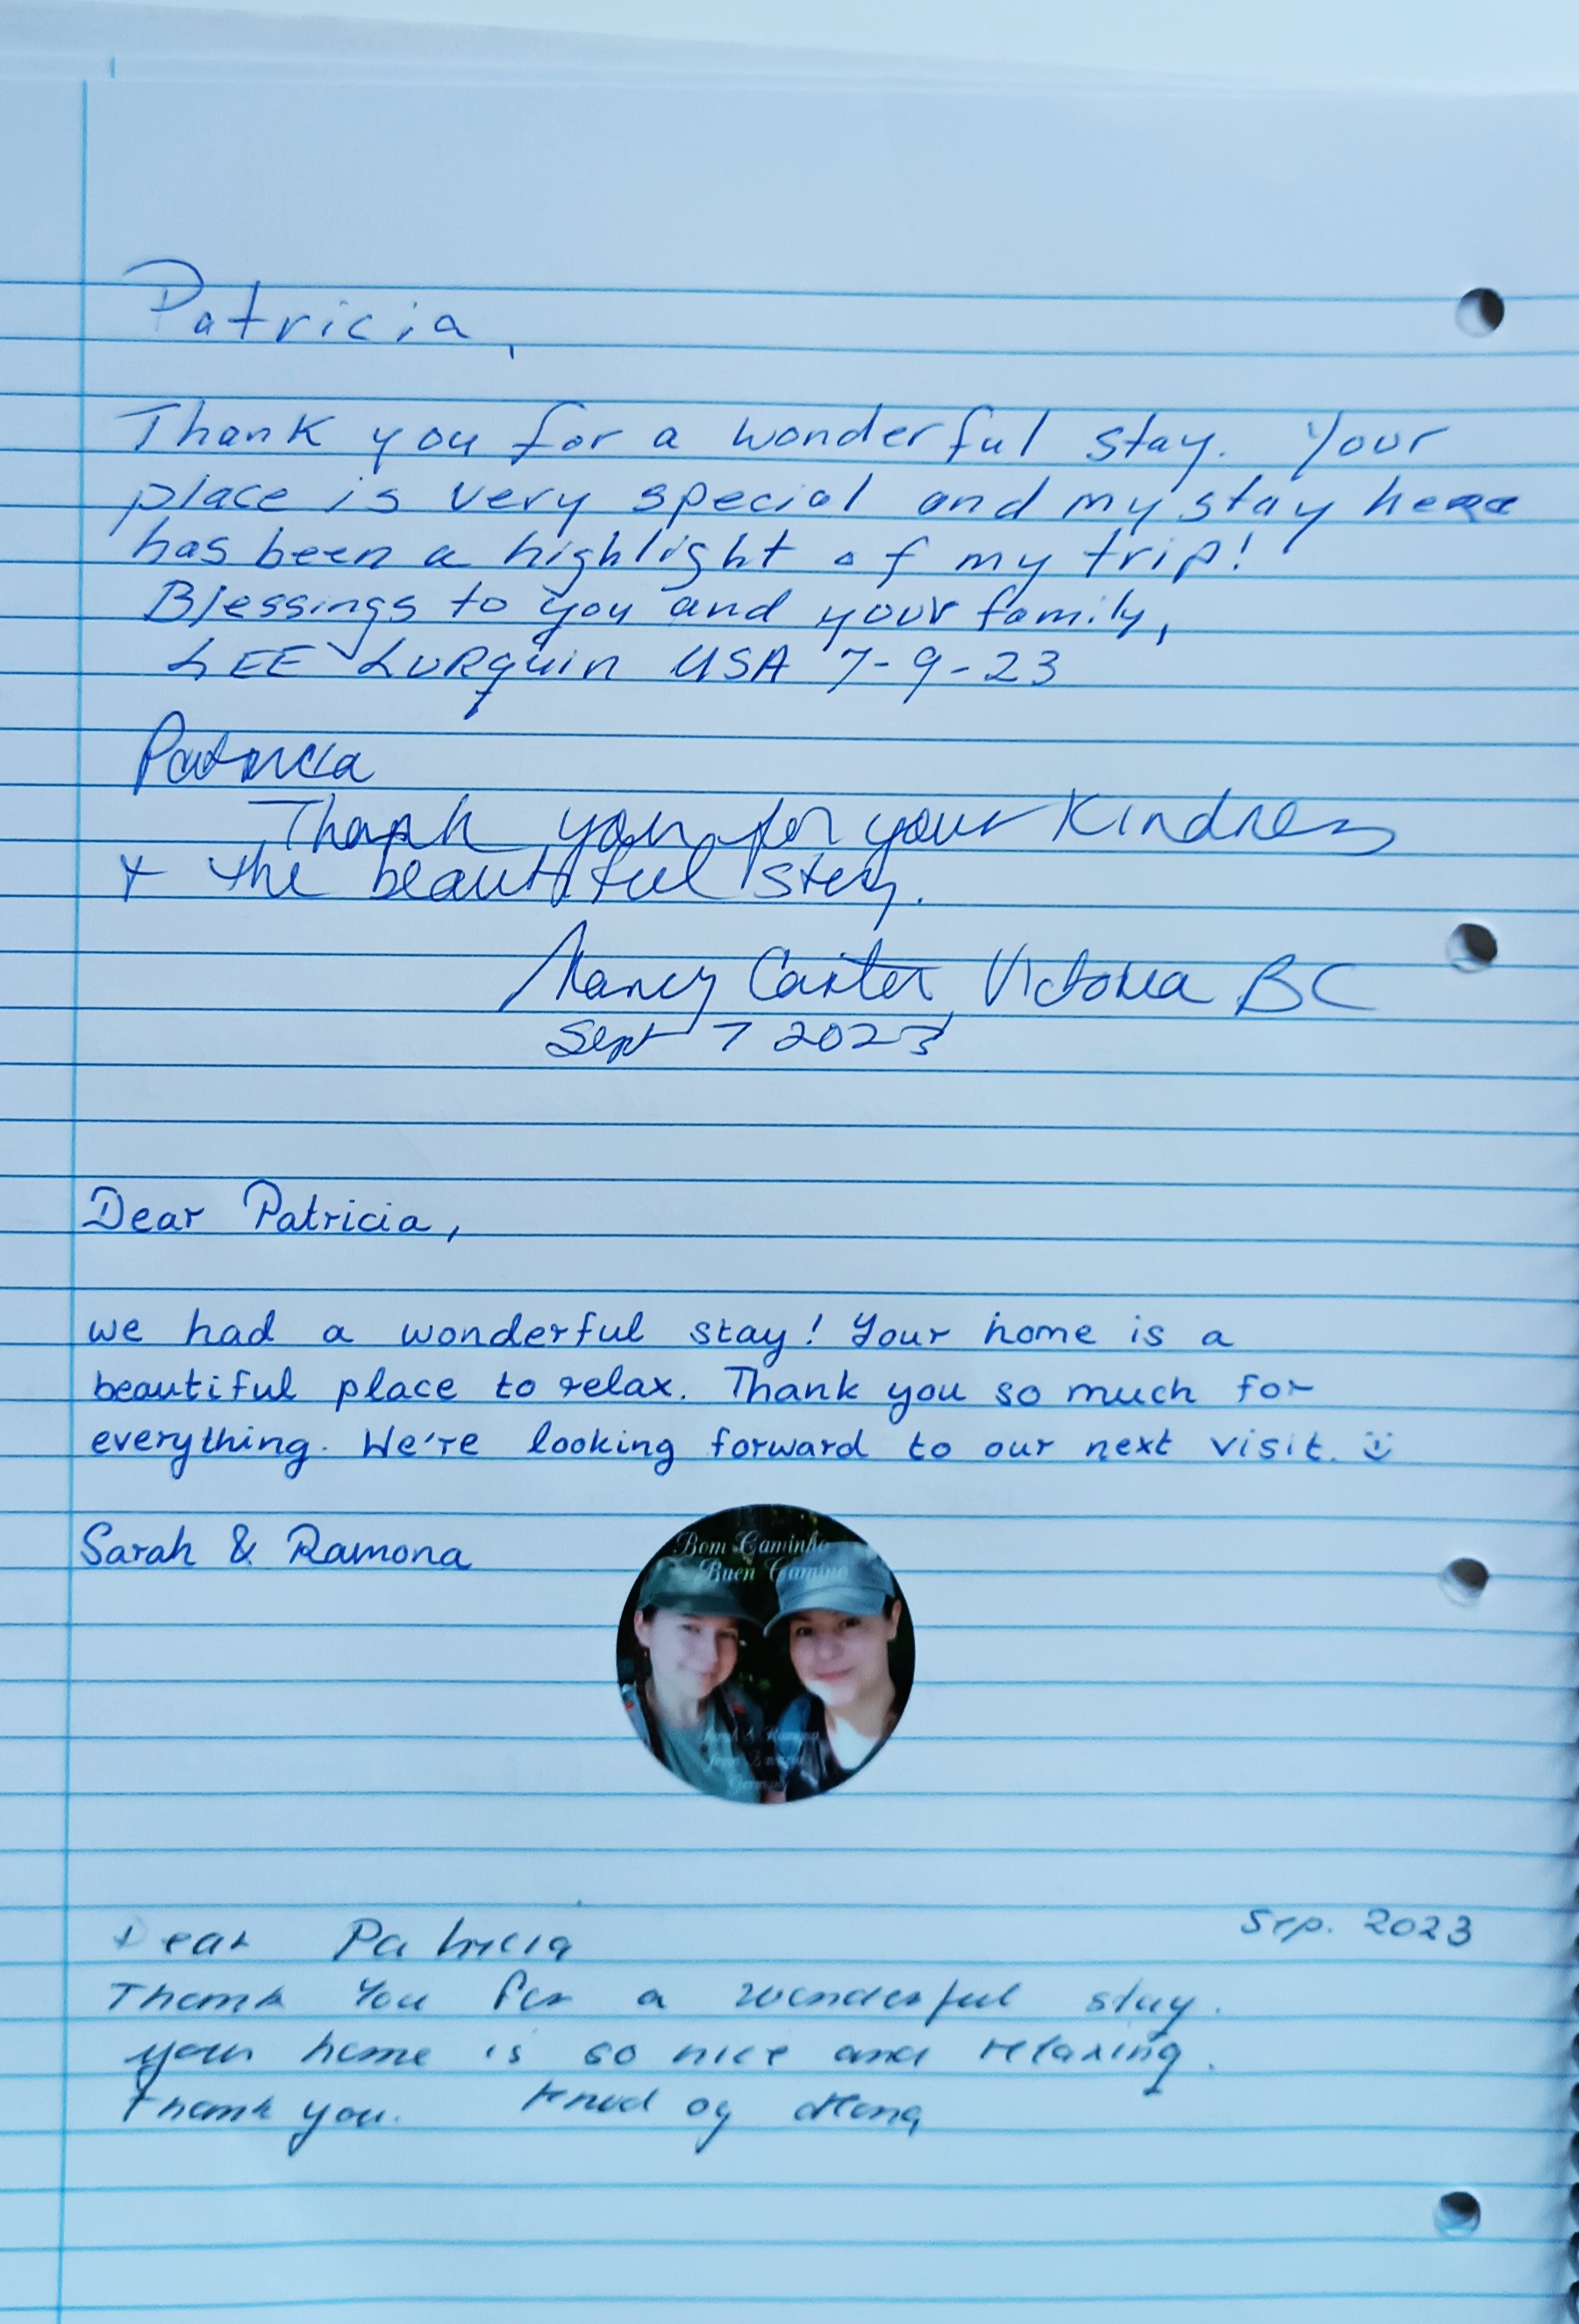 Patricia,
Thank you for a wonderful stay. Your
place is very special and my stay here
has been a highlight of my trip!
Blessings to you and your family,
LEE LURquin USA 7-9-23
Patricia
Thank you for your Kindness
+ the beautiful stay.
Nancy Carter, Victoria BC
Sept 7 2023
Dear Patricia,
we had a wonderful stay! Your home is a
beautiful place to relax. Thank you so much for
everything. We're looking forward to our next visit. :)
Sarah & Ramona
Bom Caminho
Buen Camino
Sarah & Ramona
from
Germany
Sep. 2023
Dear Patricia
Thank You for a wonderful stay.
your home is so nice and relaxing.
Thank you. Knud og